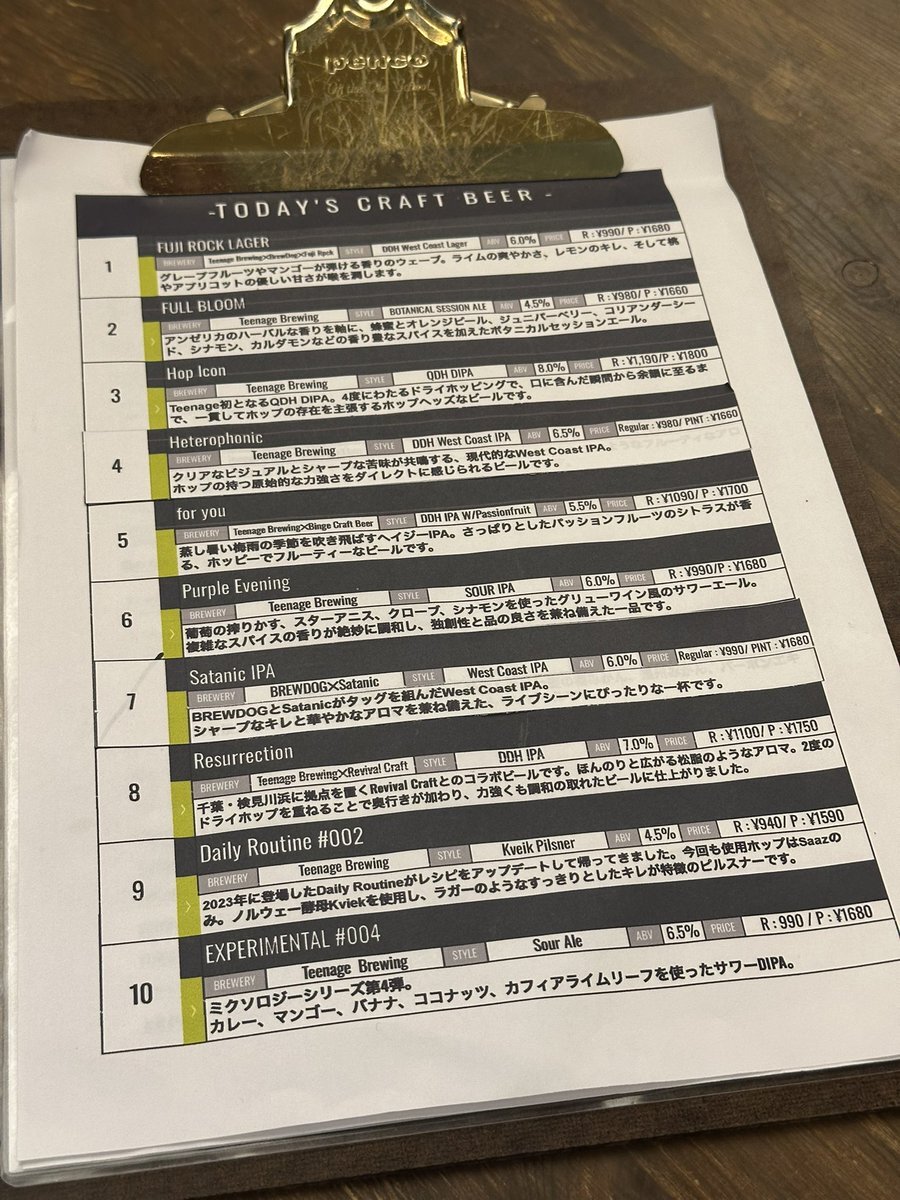 penco
-TODAY'S CRAFT BEER -
1
FUJI ROCK LAGER
BREWERY Teenage Brewing×BrewDog×Fuji Rock STYLE DDH West Coast Lager ABV 6.0% PRICE R : ¥990/ P : ¥1680
グレープフルーツやマンゴーが弾ける香りのウェーブ。ライムの爽やかさ、レモンのキレ、そして桃
やアプリコットの優しい甘さが喉を潤します。
2
FULL BLOOM
BREWERY Teenage Brewing STYLE BOTANICAL SESSION ALE ABV 4.5% PRICE R : ¥980/ P : ¥1660
アンゼリカのハーバルな香りを軸に、蜂蜜とオレンジピール、ジュニパーベリー、コリアンダーシー
ド、シナモン、カルダモンなどの香り豊なスパイスを加えたボタニカルセッションエール。
3
Hop Icon
BREWERY Teenage Brewing STYLE QDH DIPA ABV 8.0% PRICE R : ¥1,190/ P : ¥1800
Teenage初となるQDH DIPA。4度にわたるドライホッピングで、口に含んだ瞬間から余韻に至るま
で、一貫してホップの存在を主張するホップヘッズなビールです。
4
Heterophonic
BREWERY Teenage Brewing STYLE DDH West Coast IPA ABV 6.5% PRICE Regular : ¥980/ PINT : ¥1660
クリアなビジュアルとシャープな苦味が共鳴する、現代的なWest Coast IPA。
ホップの持つ原始的な力強さをダイレクトに感じられるビールです。
5
for you
BREWERY Teenage Brewing×Binge Craft Beer STYLE DDH IPA W/Passionfruit ABV 5.5% PRICE R : ¥1090/ P : ¥1700
蒸し暑い梅雨の季節を吹き飛ばすヘイジーIPA。さっぱりとしたパッションフルーツのシトラスが香
る、ホッピーでフルーティーなビールです。
6
Purple Evening
BREWERY Teenage Brewing STYLE SOUR IPA ABV 6.0% PRICE R : ¥990/P : ¥1680
葡萄の搾りかす、スターアニス、クローブ、シナモンを使ったグリューワイン風のサワーエール。
複雑なスパイスの香りが絶妙に調和し、独創性と品の良さを兼ね備えた一品です。
7
Satanic IPA
BREWERY BREWDOG×Satanic STYLE West Coast IPA ABV 6.0% PRICE Regular : ¥990/ PINT : ¥1680
BREWDOGとSatanicがタッグを組んだWest Coast IPA。
シャープなキレと華やかなアロマを兼ね備えた、ライブシーンにぴったりな一杯です。
8
Resurrection
BREWERY Teenage Brewing×Revival Craft STYLE DDH IPA ABV 7.0% PRICE R : ¥1100/ P : ¥1750
千葉・検見川浜に拠点を置くRevival Craftとのコラボビールです。ほんのりと広がる松脂のようなアロマ。2度の
ドライホップを重ねることで奥行きが加わり、力強くも調和の取れたビールに仕上がりました。
9
Daily Routine #002
BREWERY Teenage Brewing STYLE Kveik Pilsner ABV 4.5% PRICE R : ¥940/ P : ¥1590
2023年に登場したDaily Routineがレシピをアップデートして帰ってきました。今回も使用ホップはSaazの
み。ノルウェー酵母Kviekを使用し、ラガーのようなすっきりとしたキレが特徴のピルスナーです。
10
EXPERIMENTAL #004
BREWERY Teenage Brewing STYLE Sour Ale ABV 6.5% PRICE R : 990 / P : ¥1680
ミクソロジーシリーズ第4弾。
カレー、マンゴー、バナナ、ココナッツ、カフィアライムリーフを使ったサワーDIPA。